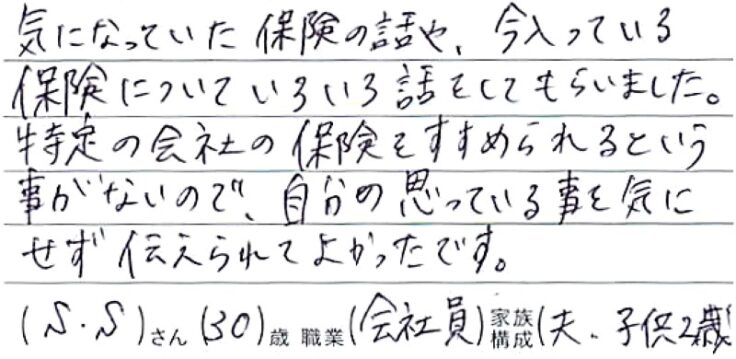 気になっていた保険の話や、今入っている
保険についていろいろ話をしてもらいました。
特定の会社の保険をすすめられるという
事がないので、自分の思っている事を気に
せず伝えられてよかったです。
(S・S)さん(30)歳 職業(会社員)家族構成(夫、子供2歳